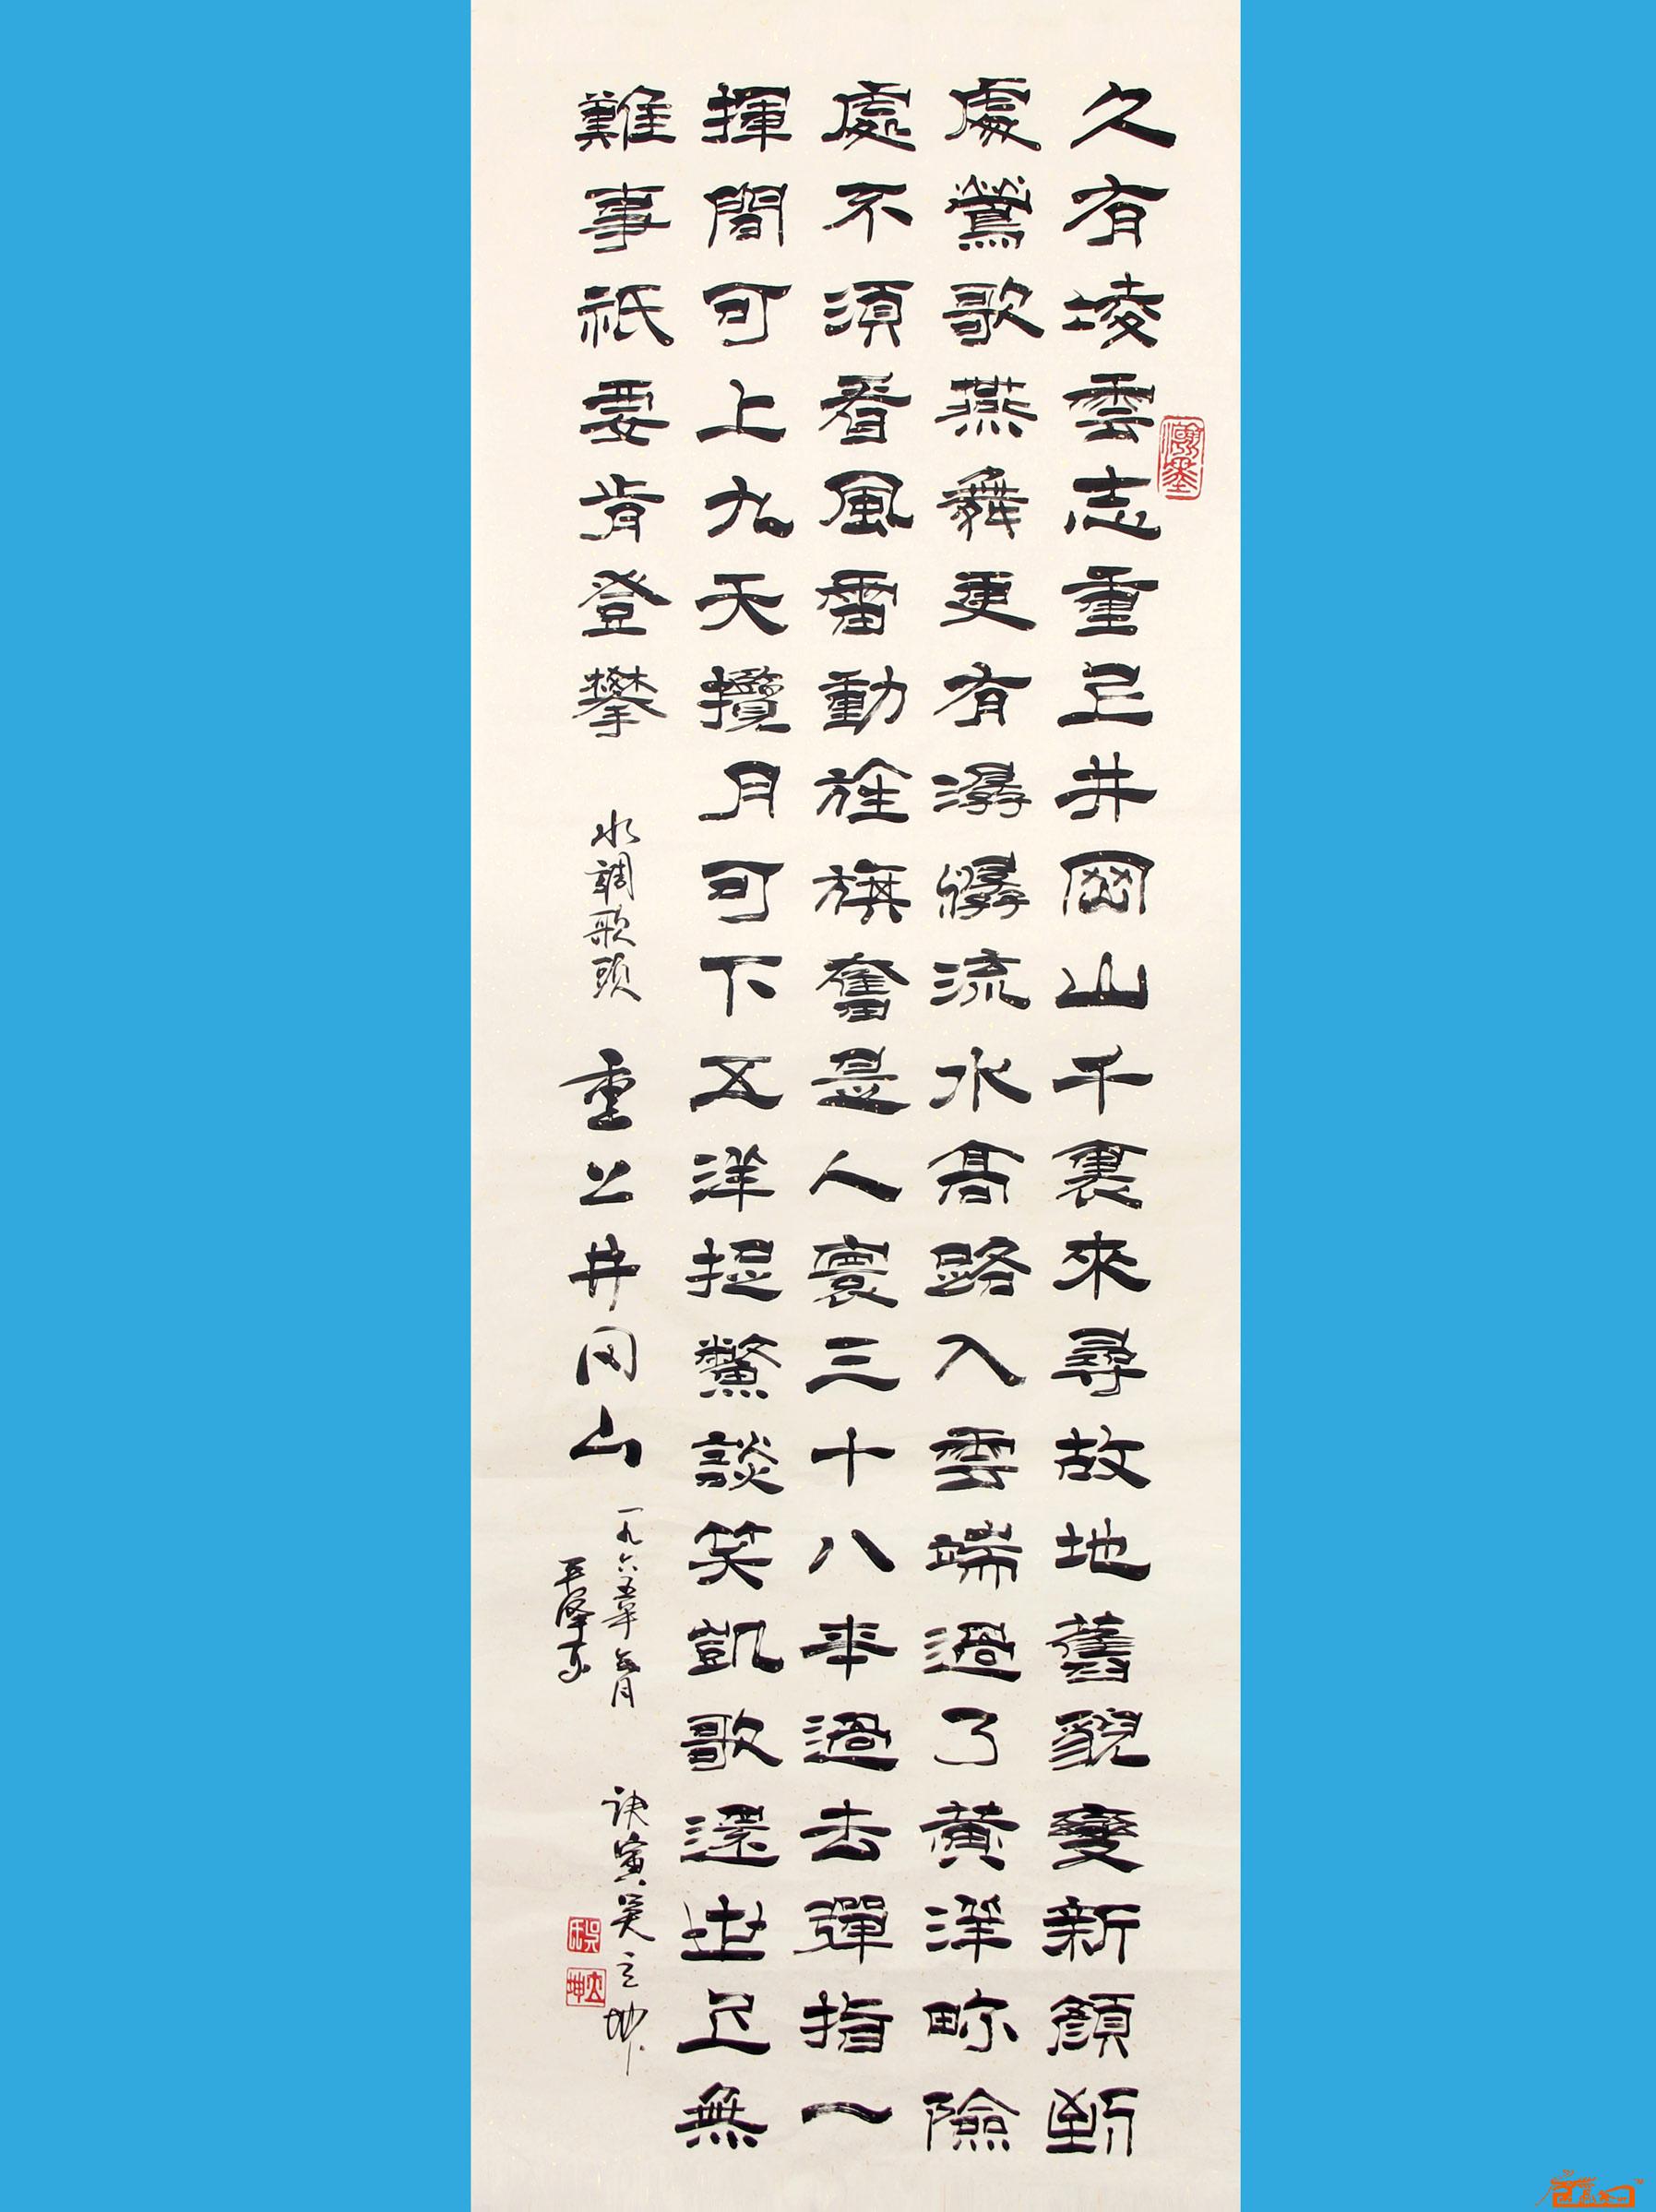 久有凌雲志重上井岡山千裏來尋故地舊貌變新顏到
處鶯歌燕舞更有潺潺流水高路入雲端過了黃洋畍險
處不須看風雷動旌旗奮是人寰三十八年過去彈指一
揮間可上九天攬月可下五洋捉鱉談笑凱歌還世上無
難事祇要肯登攀 水調歌頭 重上井冈山 一九六五年五月
毛澤東
寅吴立坤
翰墨
吳氏
立坤